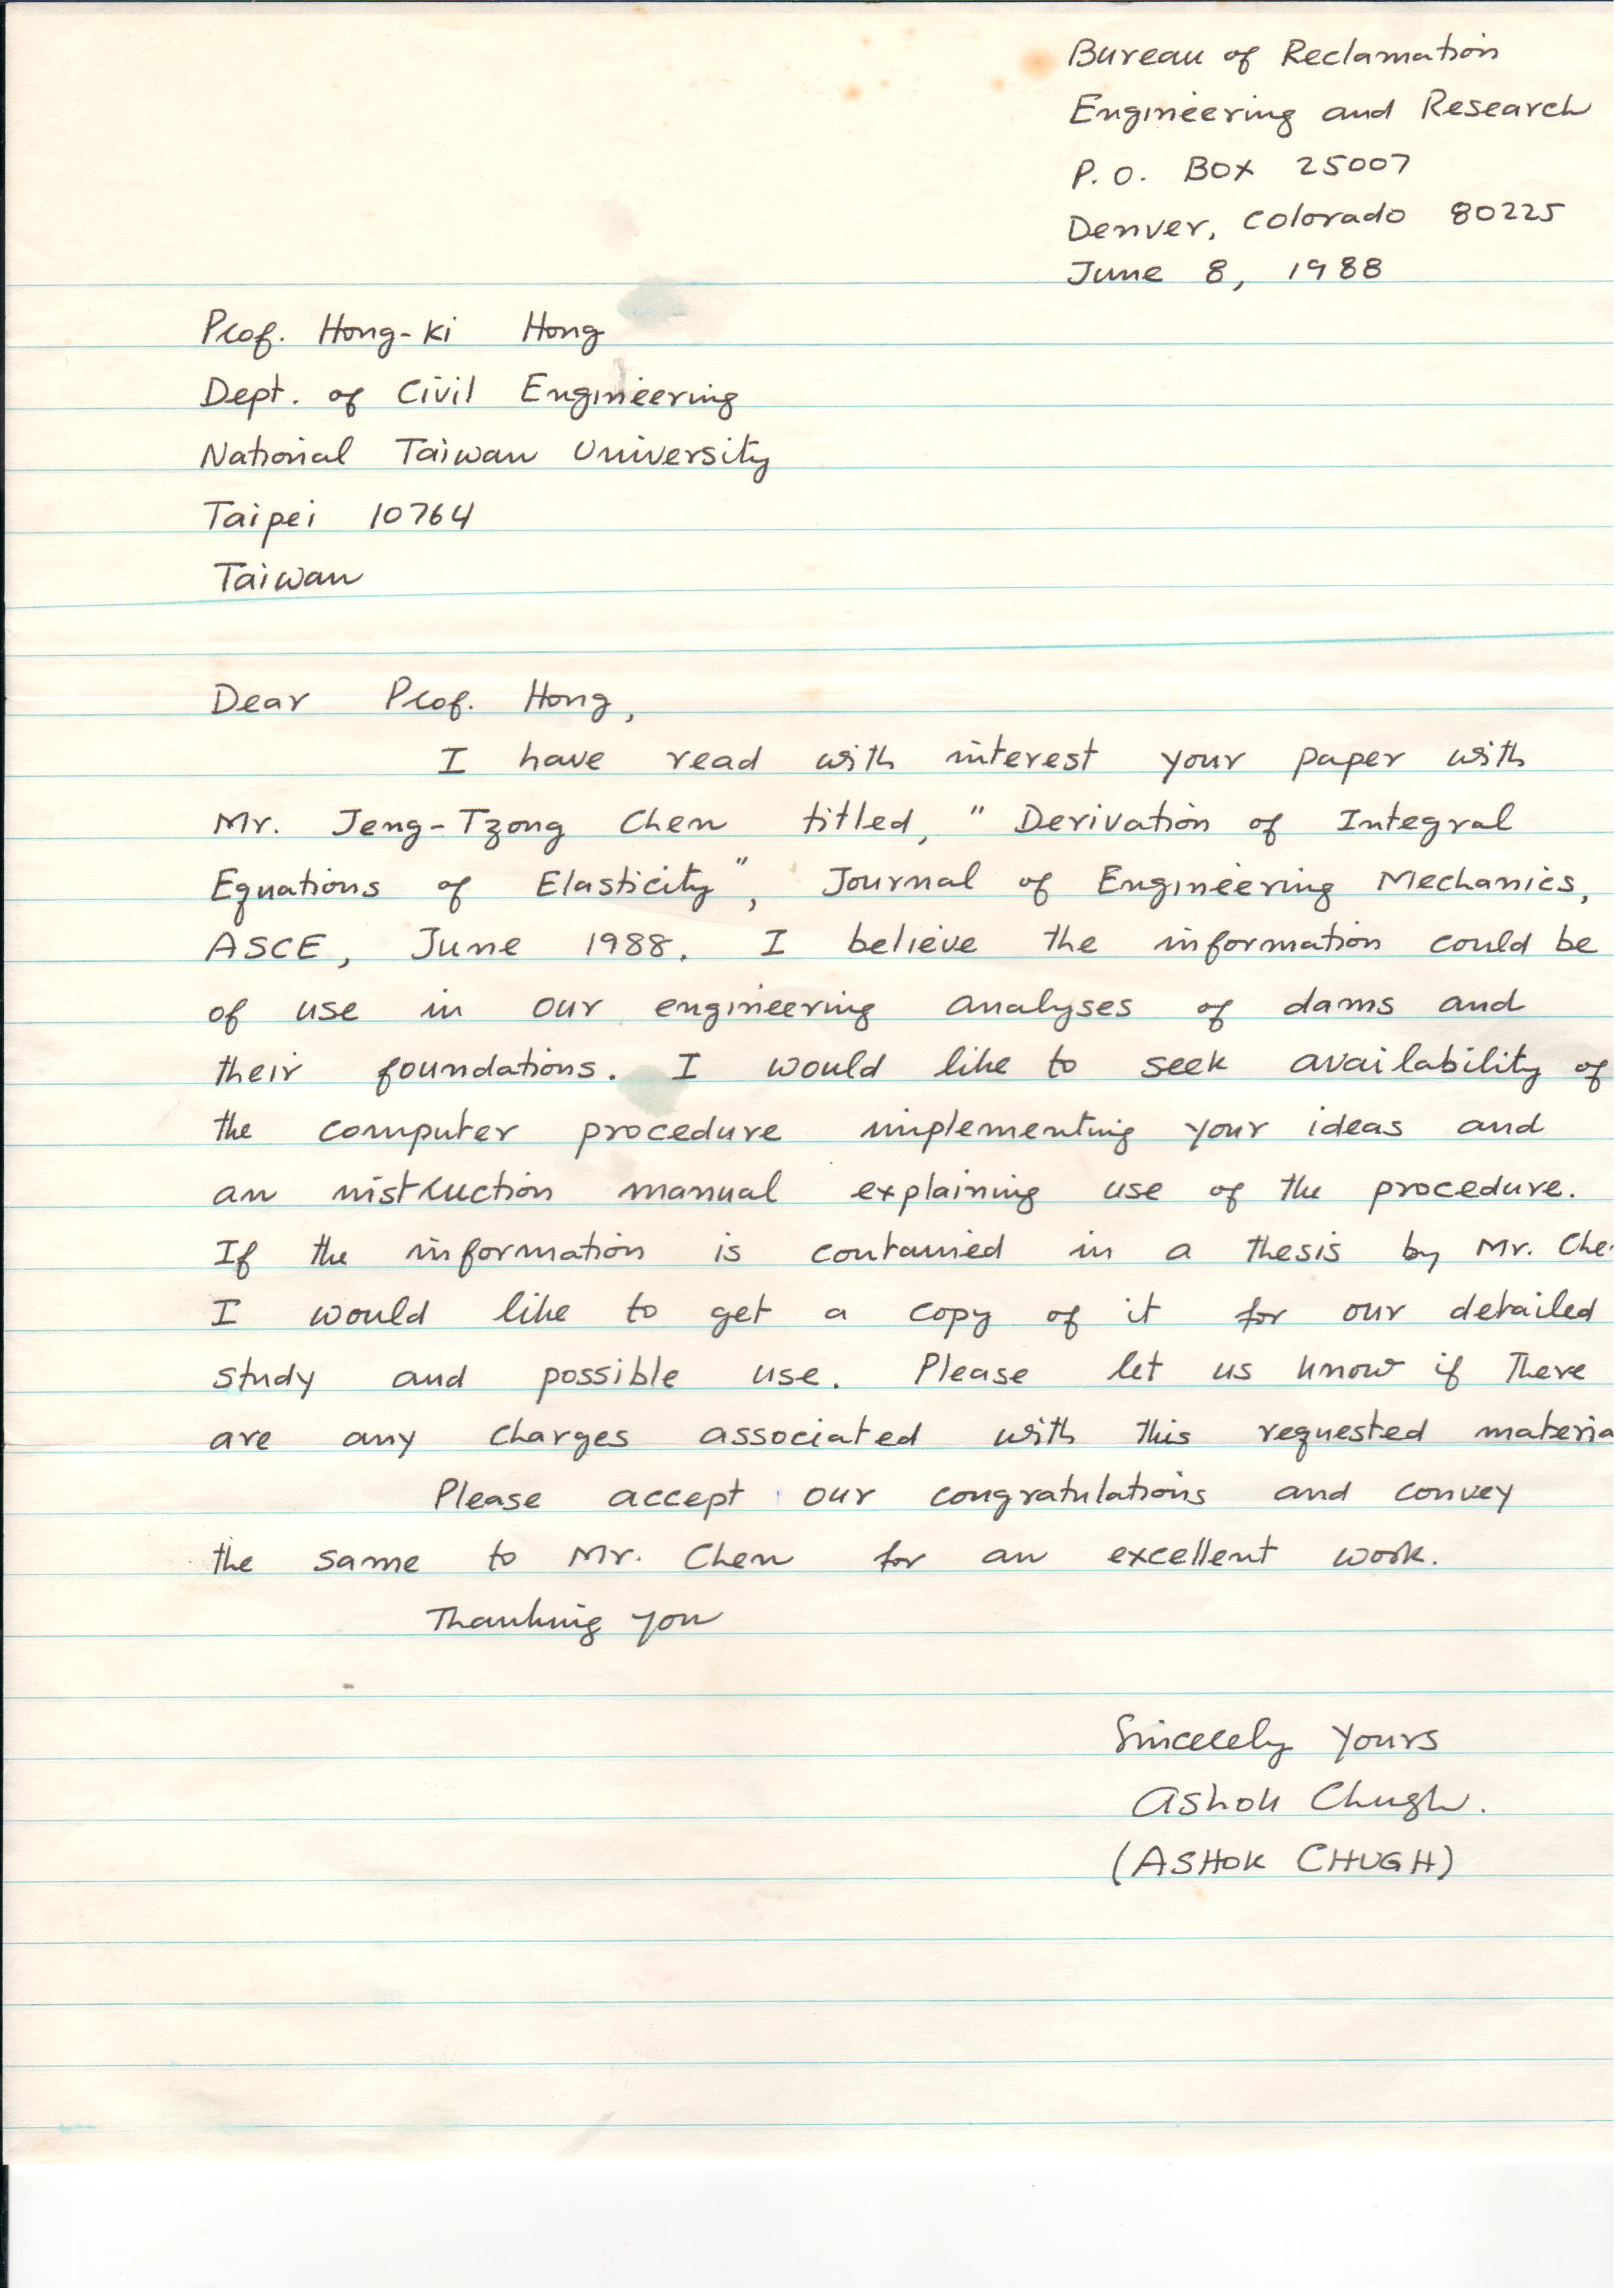 Bureau of Reclamation
Engineering and Research
P.O. Box 25007
Denver, Colorado 80225
June 8, 1988
Prof. Hong-Ki Hong
Dept. of Civil Engineering
National Taiwan University
Taipei 10764
Taiwan
Dear Prof. Hong,
I have read with interest your paper with
Mr. Jeng-Tzong Chen titled, "Derivation of Integral
Equations of Elasticity", Journal of Engineering Mechanics,
ASCE, June 1988. I believe the information could be
of use in our engineering analyses of dams and
their foundations. I would like to seek availability of
the computer procedure implementing your ideas and
an instruction manual explaining use of the procedure.
If the information is contained in a thesis by Mr. Che
I would like to get a copy of it for our detailed
study and possible use. Please let us know if there
are any charges associated with this requested materia
Please accept our congratulations and convey
the same to Mr. Chen for an excellent work.
Thanking you
Sincerely yours
Ashok Chugh.
(ASHOK CHUGH)